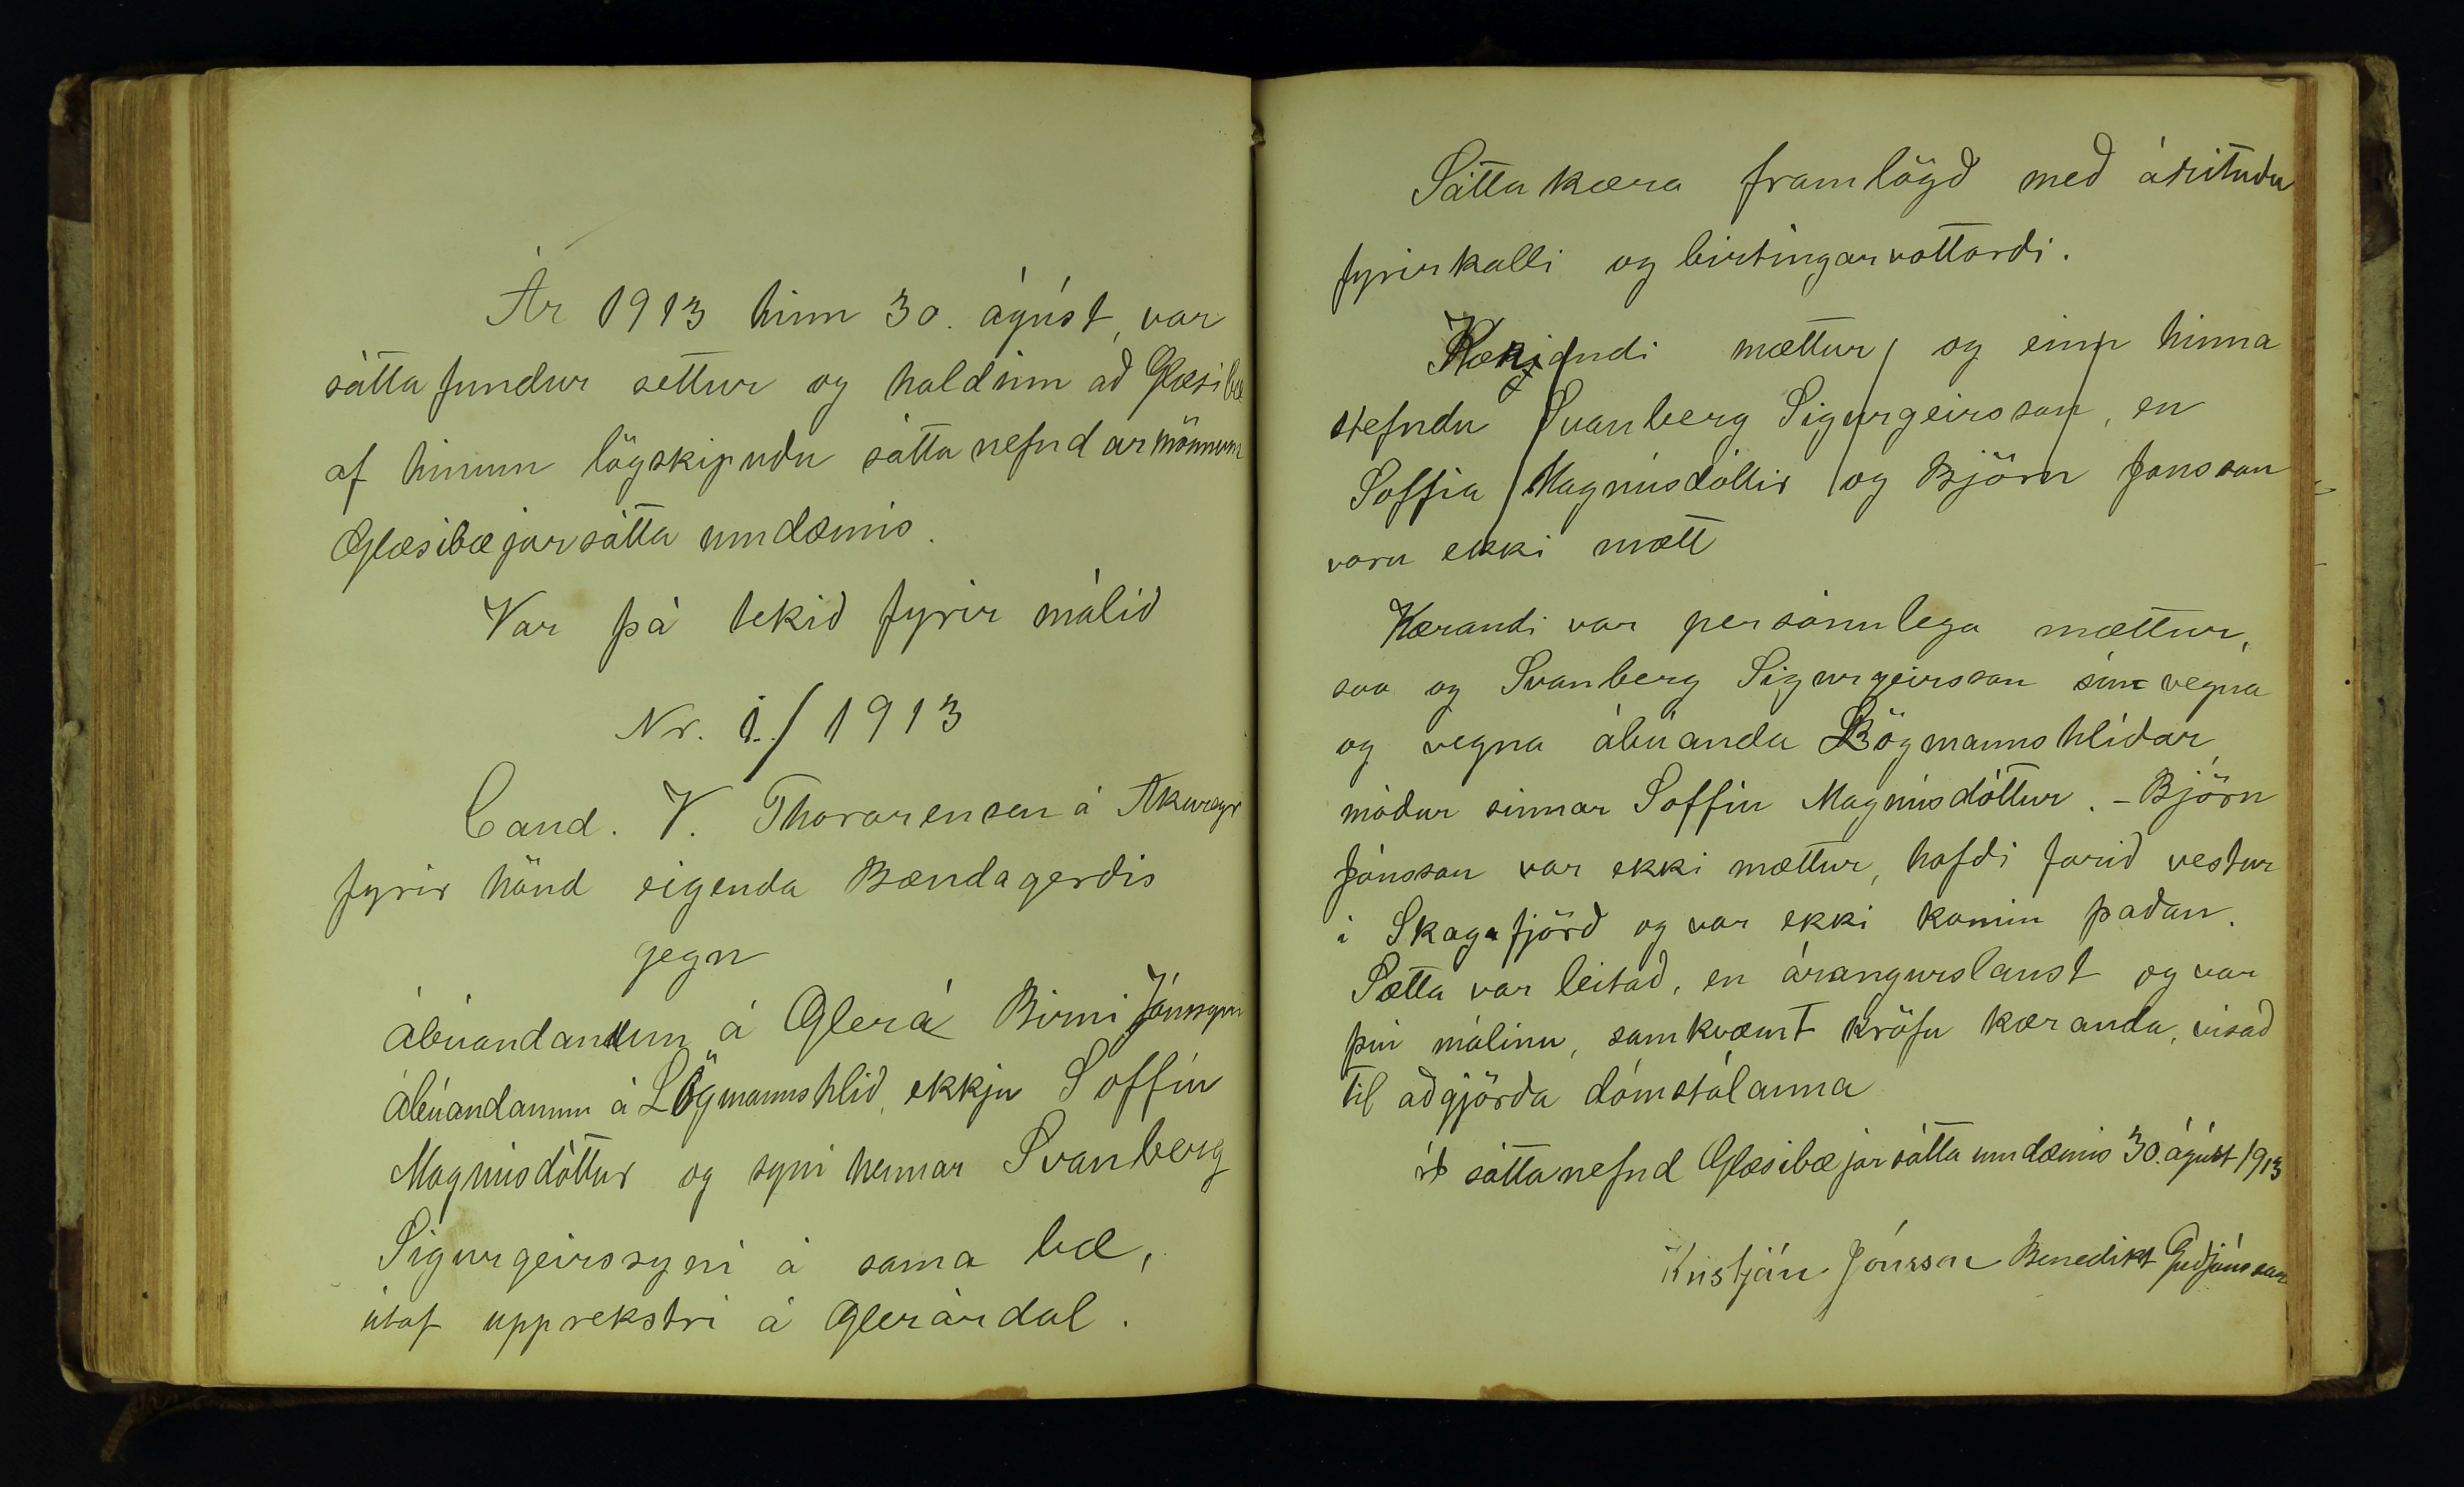 Ár 1913 hinn 30. ágúst, var
sáttafundur settur og haldinn að Glæsibæ
af hinum lögskipuðu sáttanefndarmönnum
Glæsibæjarsáttaumdæmis.
Var þá tekið fyrir málið
Nr. 1./1913
Cand. V. Thorarensen á Akureyri
fyrir hönd eigenda Bændagerðis
gegn
Ábúandanum á Glerá Birni Jónssyni
Ábúandanum á Lögmannshlíð, ekkju Soffíu
Magnúsdóttur og syni hennar Svanberg
Sigurgeirssyni á sama bæ,
útaf upprekstri á Glerárdal.
Sáttakæra framlögð með árituðu
fyrirkalli og birtingarvottorði.
Kærandi mættur og einn hinna
stefndu Svanberg Sigurgeirsson, en
Soffia Magnúsdóttir og Björn Jonsson
voru ekki mætt
Kærandi var persónulega mættur,
svo og Svanberg Sigurgeirsson sín vegna
og vegna ábúanda Lögmannshlíðar,
móður sinnar Soffíu Magnúsdóttur. - Björn
Jónsson var ekki mættur, hafði farið vestur
í Skagafjörð og var ekki komin þaðan.
Sætta var leitað, en árangurslaust og var
því málinu, samkvæmt kröfu kæranda, vísað
til aðgjörða dómstólanna
Í sáttanefnd Glæsibæjarsáttaumdæmis 30. ágúst 1913
Kristján Jónsson Benedikt Guðjónsson